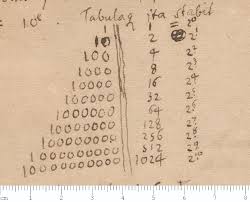 Tabula ita stabit
1 1
10 2 2¹
100 4 2²
1000 8 2³
10000 16 2⁴
100000 32 2⁵
1000000 64 2⁶
10000000 128 2⁷
100000000 256 2⁸
1000000000 512 2⁹
10000000000 1024 2¹⁰
cm 1 2 3 4 5 6 7 8